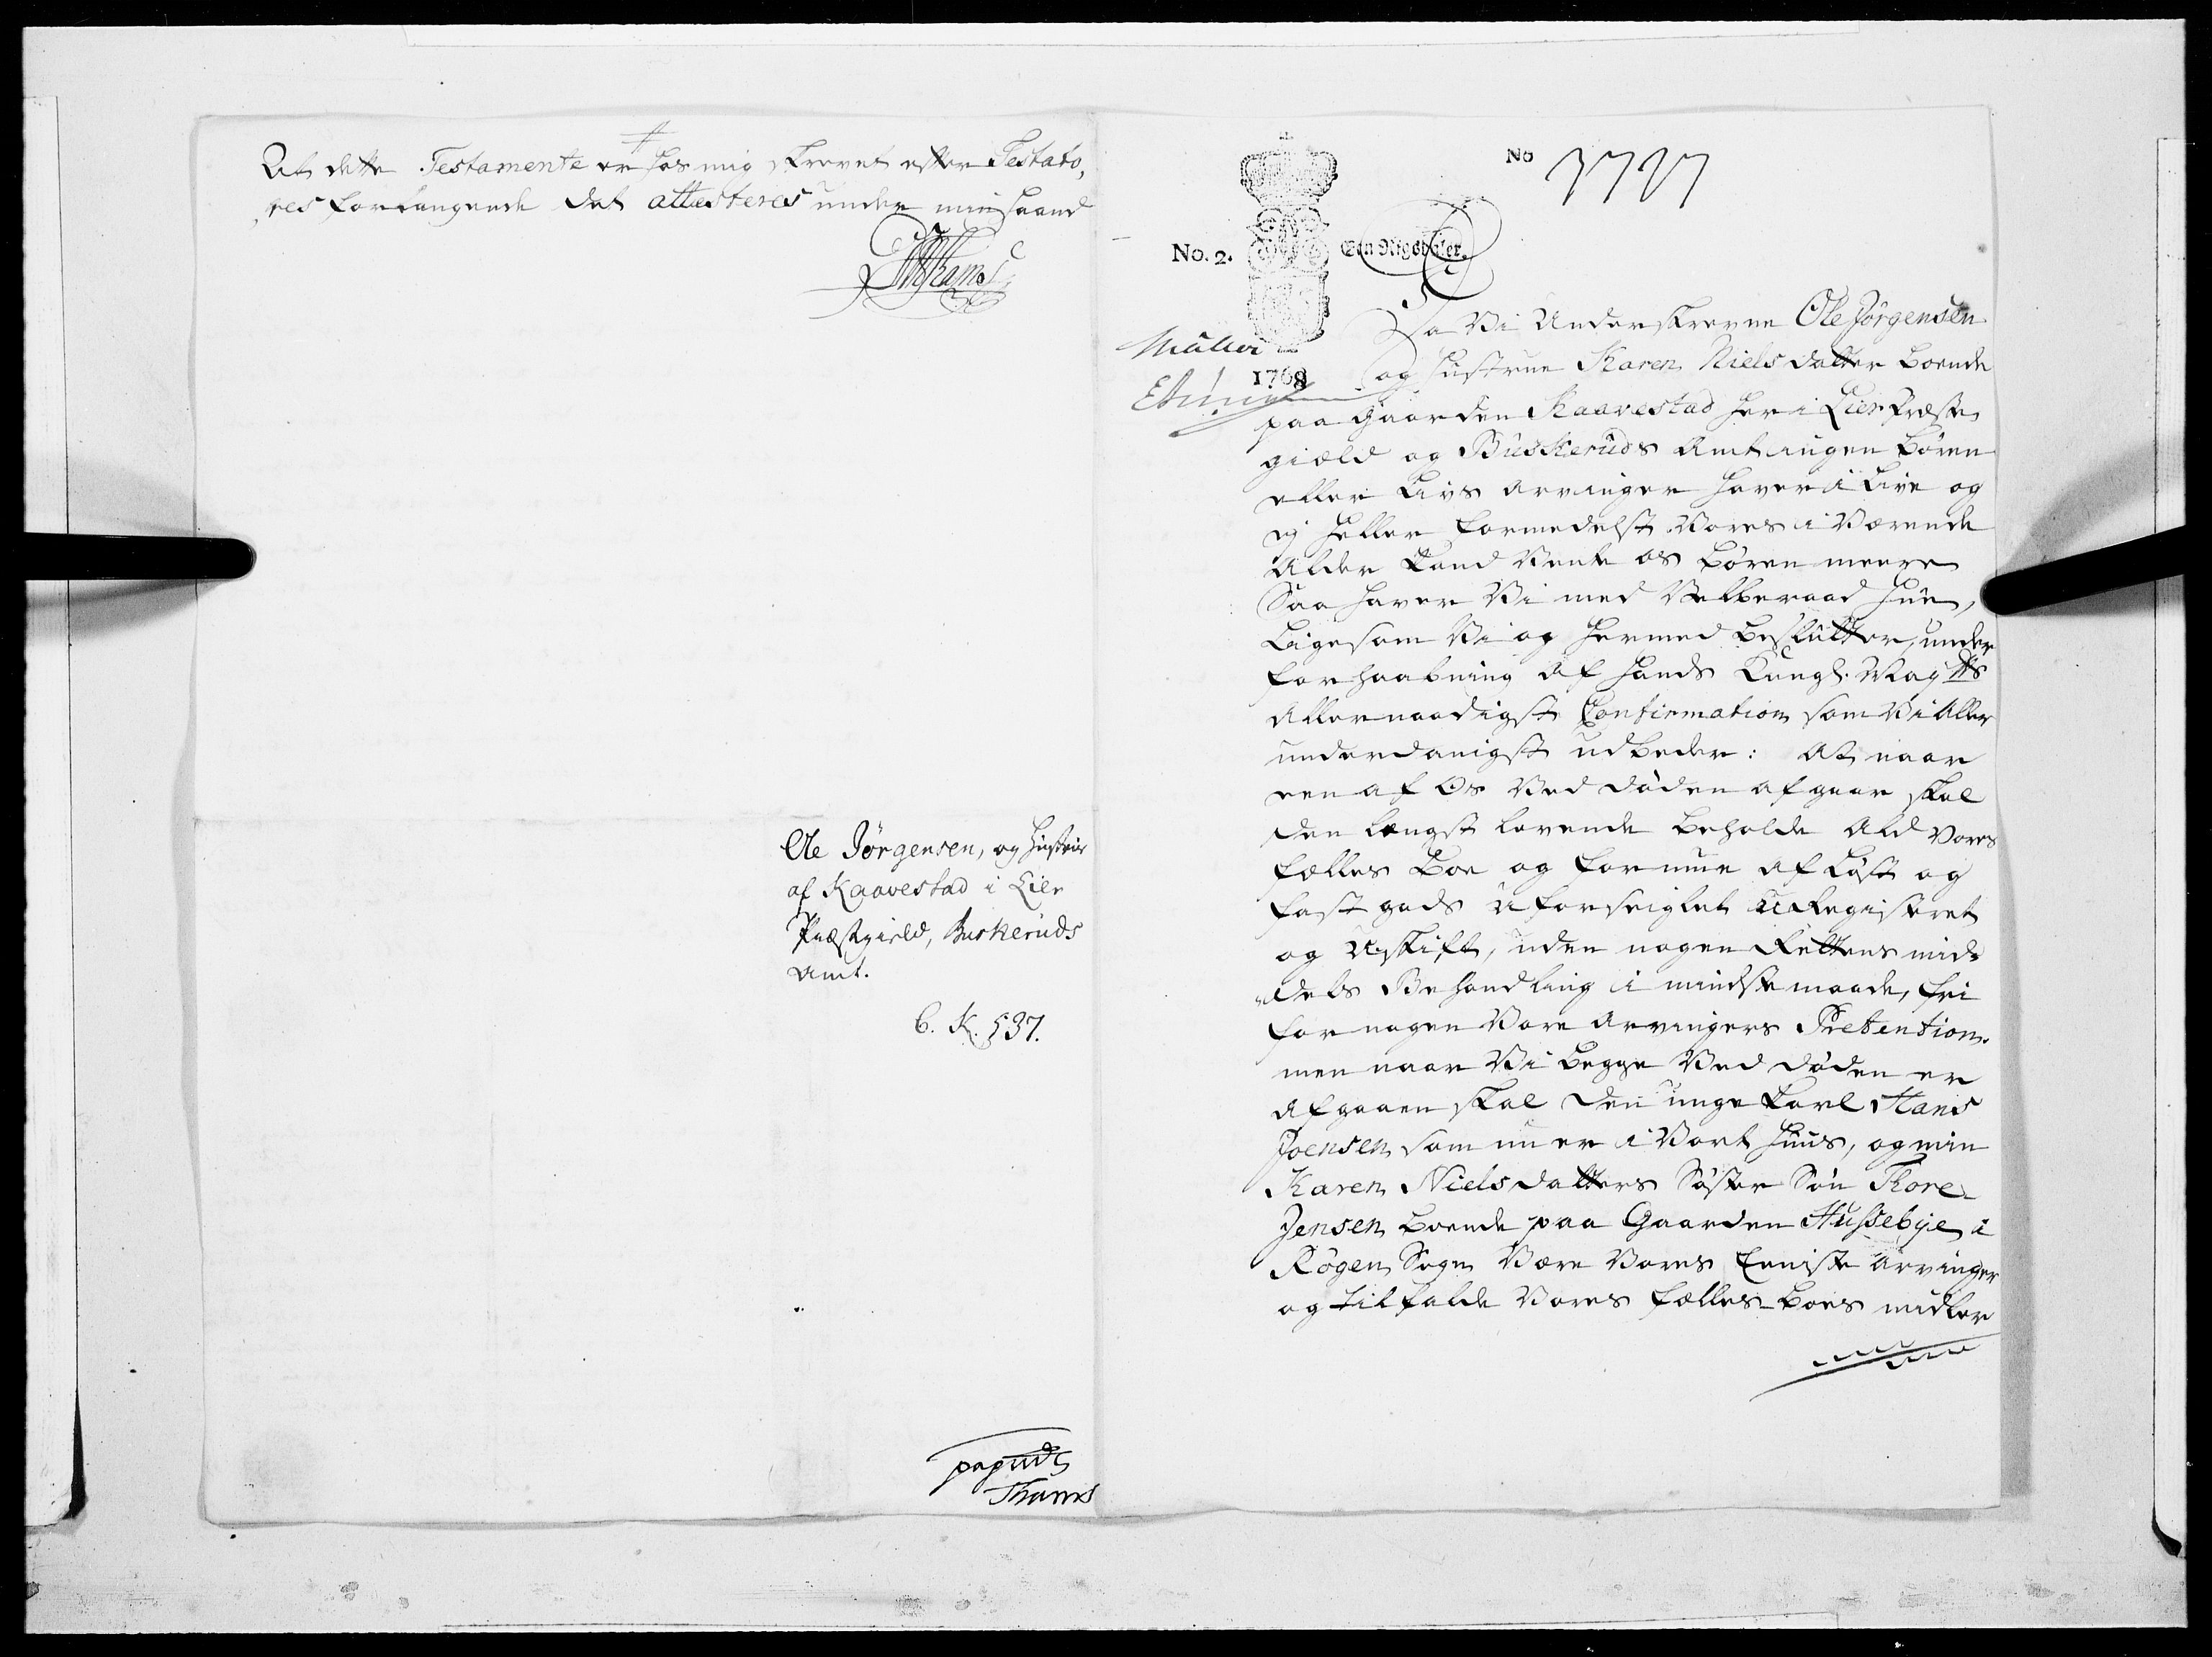 At dette Testamente er hos mig skrevet efter Testato,
res forlangende det attesteres under min haand
Thams
Ole Jörgensen, og Hustrue
af Kaavestad i Lier
Præstegield, Buskeruds
Amt.
C. K. 537.
Thams
No
No. 2.
Een Rigsdaler.
Müller
1768
Da Vi Underskrevne Ole Jörgensen
og Hustrue Karen Niels datter boende
paa Gaarden Kaavestad her i Lier Præste
gield og Buskeruds Amt ingen Børen
eller Livs Arvinger haver i Live og
ej heller formedelst Vores i Værende
Alder kand Vente os Børen meere
Saa haver Vi med Velberaad Hue,
Ligesom Vi og hermed beslutter, under
forhaabning af Hands Kongl. May.tts
Allernaadigst Confirmation som Vi Aller
underdanigst udbeder: At naar
een af Os Ved døden afgaar skal
den længst levende beholde Ald Vores
fælles Boe og formue af Løst og
fast gods Uforseiglet Uregisteret
og Uskift, uden nogen Rettens mid-
dels Behandling i mindste maade, fri
for nogen Vore Arvingers Pretention.
men naar Vi begge Ved døden er
afgaaen skal den unge karl Hans
Joensen som nu er i Vort Huus, og min
Karen Niels datters Søster Søn Thore
Jensen boende paa Gaarden Hussebye i
Røgen Sogn Være Vores Eeniste Arvinger
og tilfalde Vores fælles Boes midler